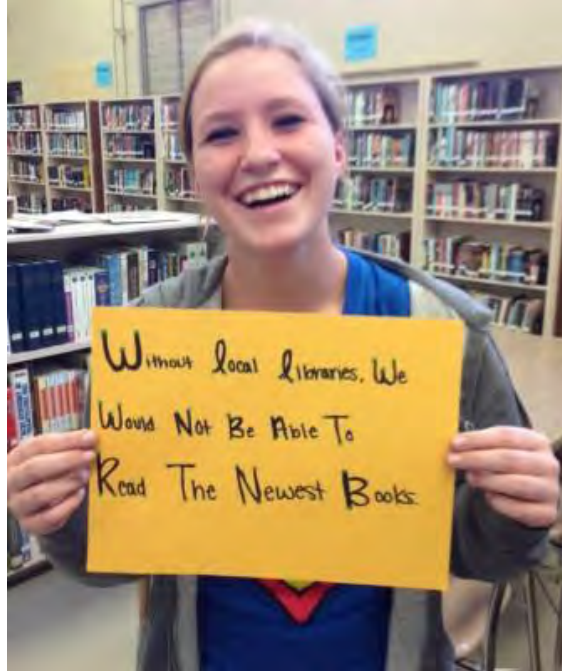 Without local libraries, We
Would Not Be Able To
Read The Newest Books.